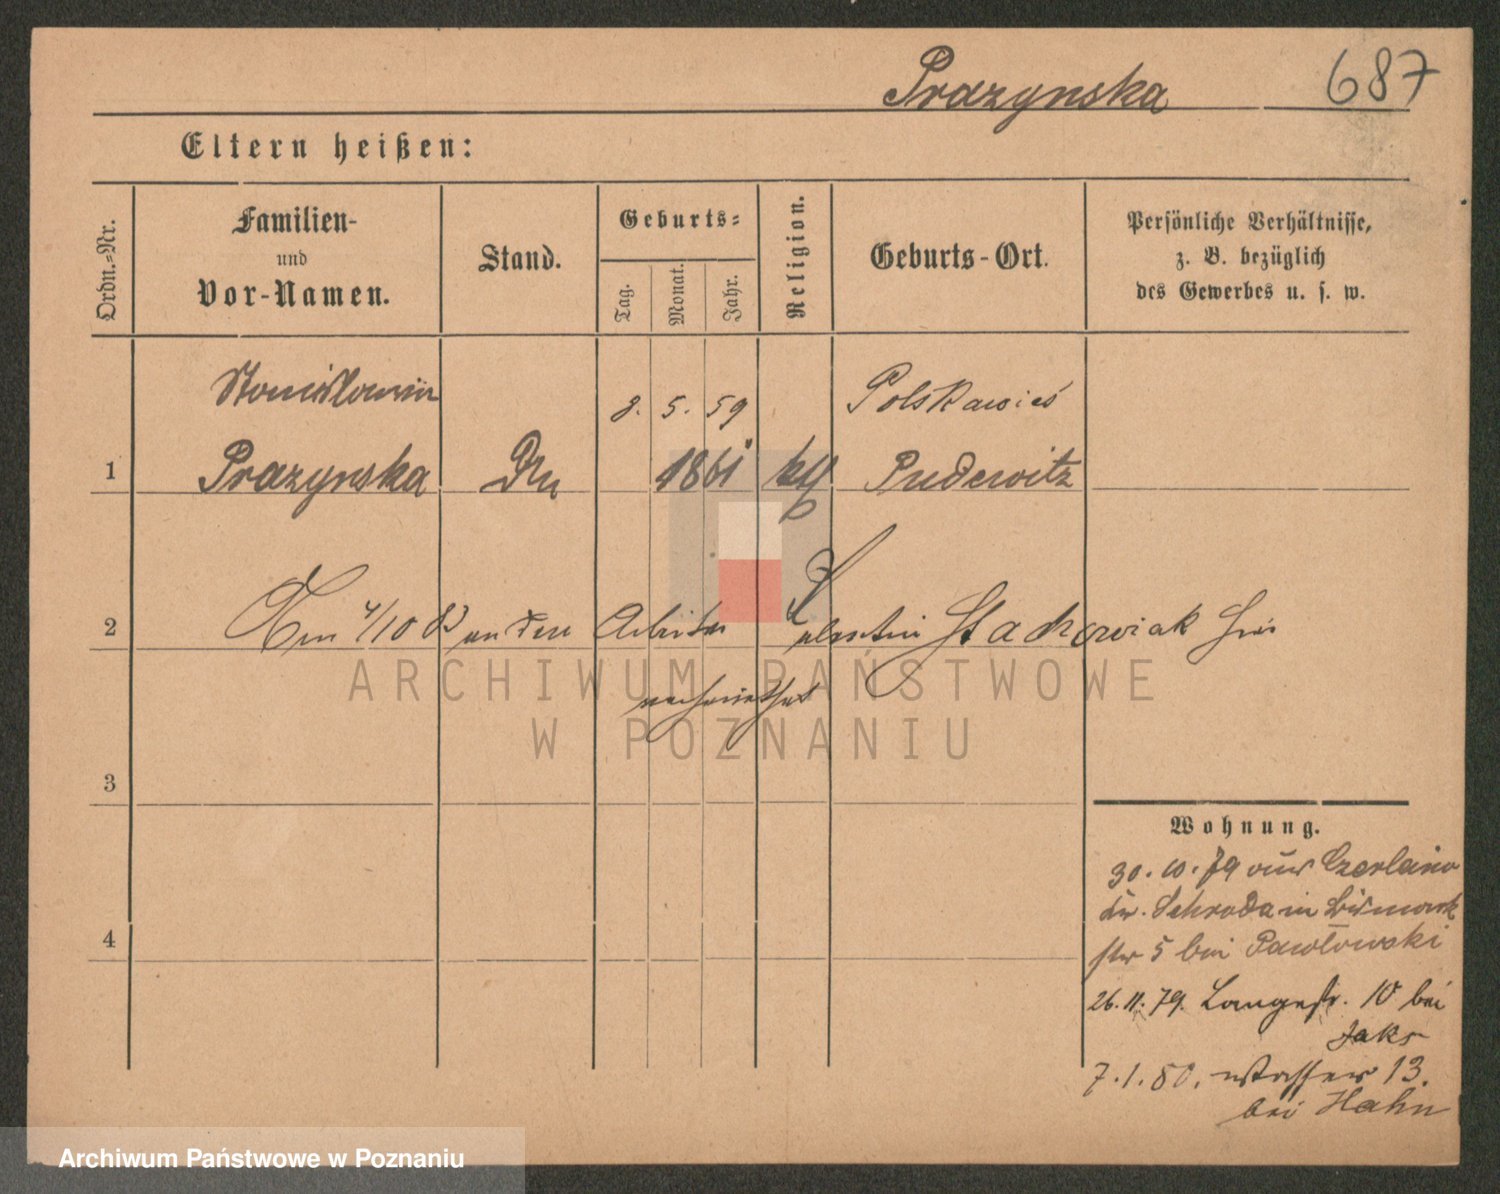 Prazynska 687
Eltern heißen:
Ordn.-Nr.
Familien-
und
Vor-Namen.
Stand.
Geburts-
Tag.
Monat.
Jahr.
Religion.
Geburts-Ort.
Persönliche Verhältnisse,
z. B. bezüglich
des Gewerbes u. s. w.
8. 5. 59 Polskawieś
1 Prazynska 1861 kth Pudewitz
2 Am 4/10 83 an den Arbeiter Stachowiak hier
verheirathet
3
4
Wohnung.
30. 10. 79 aus Czerleino
Kr. Schroda in Bismark
str 5 bei Pawlowski
26. 11. 79. Langestr. 10 bei
Jaks
7. 1. 80. Wasserstr 13.
bei Hahn
ARCHIWUM PAŃSTWOWE
W POZNANIU
Archiwum Państwowe w Poznaniu